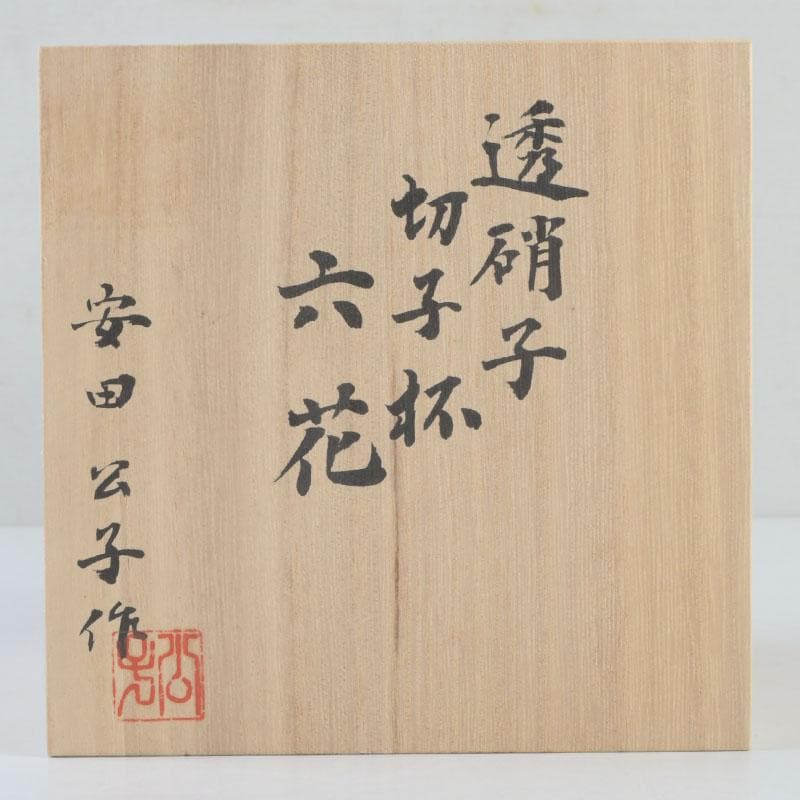 透硝子
切子杯
六花
安田公子作
公子